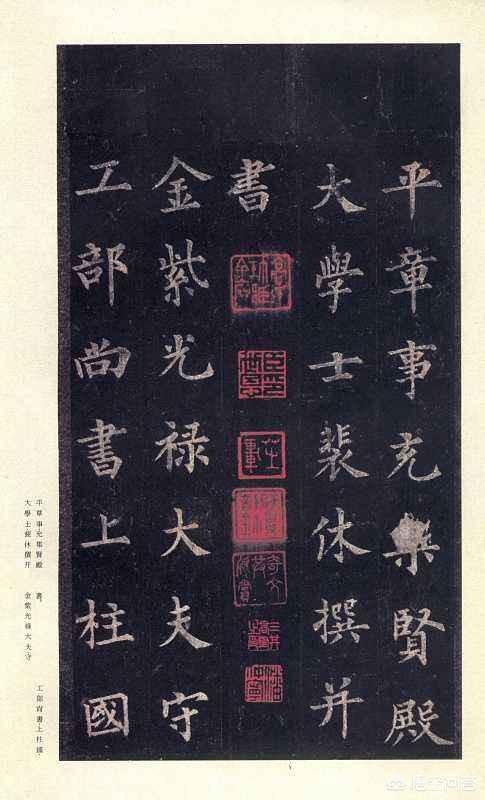 平章事充集賢殿
大學士裴休撰并
書
金紫光禄大夫守
工部尚書上柱國
平章事充集賢殿
大學士裴休撰并
書
金紫光祿大夫守
工部尚書上柱國